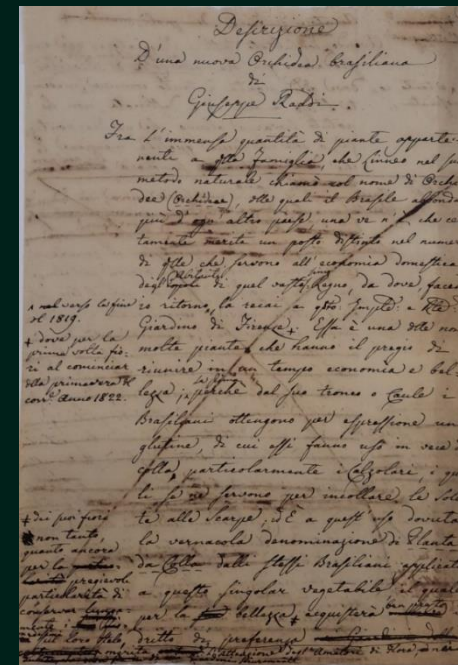 Descrizione
D'una nuova Orchidea brasiliana
di
Giuseppe Raddi.
Fra l'immensa quantità di piante apparte-
nenti a questa famiglia, che Linneo nel su
metodo naturale chiamò col nome di Orchi
dee (Orchideae), delle quali il Brasile abbond
più d'ogni altro paese, una ve n'è che ce
tamente merita un posto distinto nel numer
di quelle che servono all'economia domestica
degli abitanti di quel vasto Regno, da dove, facen
io ritorno, la recai a questo
Giardino di Firenze. Essa è una delle non
molte piante che hanno il pregio di
riunire in un tempo economia e bel-
lezza, perchè dal suo tronco o Caule i
Brasiliani ottengono per espressione un
glutine, di cui essi fanno uso in vece di
colla, particolarmente i Calzolari, i qua
li se ne servono per incollare le Sole
te alle Scarpe; ed È a quest'uso dovuta
la vernacola denominazione di Planta
da Colla dalli stessi Brasiliani applicat
a questo singolar vegetabile il quale
per la bellezza acquisterà
dritto di preferenza
merita Amatori di Flora
nel verso la fine
del 1819.
dove per la
prima volta fio-
rì al cominciar
della primavera del
corr. anno 1822.
dei suoi fiori
non tanto,
quanto ancora
per la
pregievole
particolarità di
conservar